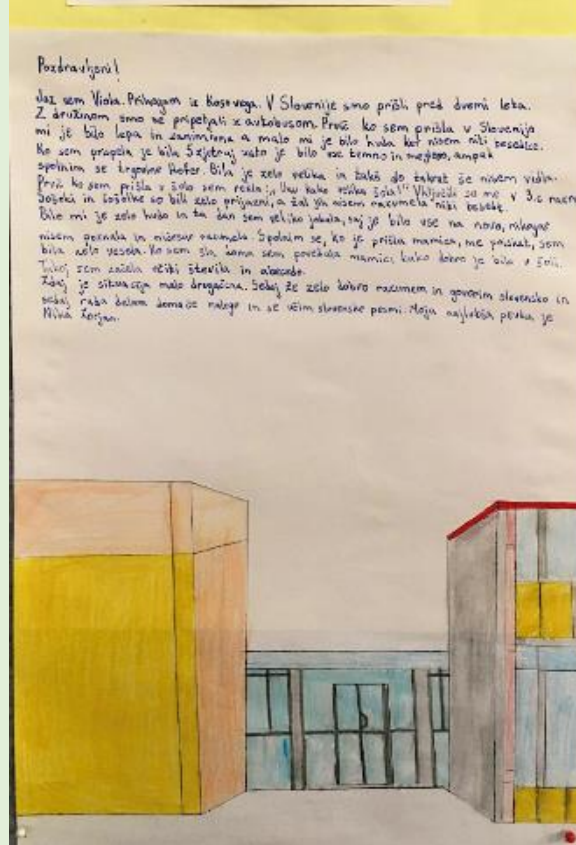 Pozdravljeni!
Jaz sem Viola. Prihajam iz Kosovega. V Slovenije smo prišli pred dvemi leta.
Z družinom smo se pripeljali z avtobusom. Prvič ko sem prišla v Slovenijo
mi je bilo lepa in zanimiva a malo mi je bilo huda ker nisem niti besedice.
Ko sem prispela je bila 5 zjutraj zato je bilo vse temno in ampak
spolnim se trgovine Hofer. Bila je zelo velika in takš do takrat še nisem vidla.
Prvič ko sem prišla v šolo sem rekla „ Uau kako velika šola!" Vključili so me v 3.c
Sošolki in sošolke so bili zelo prijazni, a žal jih nisem razumela niti besede.
Bilo mi je zelo hudo in ta dan sem veliko jokala, saj je bilo vse na novo, nikogar
nisem poznala in ničesar razumela. Spolnim se, ko je prišla mamica, me poiskat, sem
bila zelo vesela. Ko sem šla doma sem povedula mamici kako dobro je bila v šoli.
Takoj sem začela učiti števila in abecedo.
Zdaj je situacija malo drugačna. Sedaj že zelo dobro razumem in govorim slovensko in
sedaj rada delam domače naloge in se učim slovenske pesmi. Moja najlubša pevka je
Nika Zorjan.